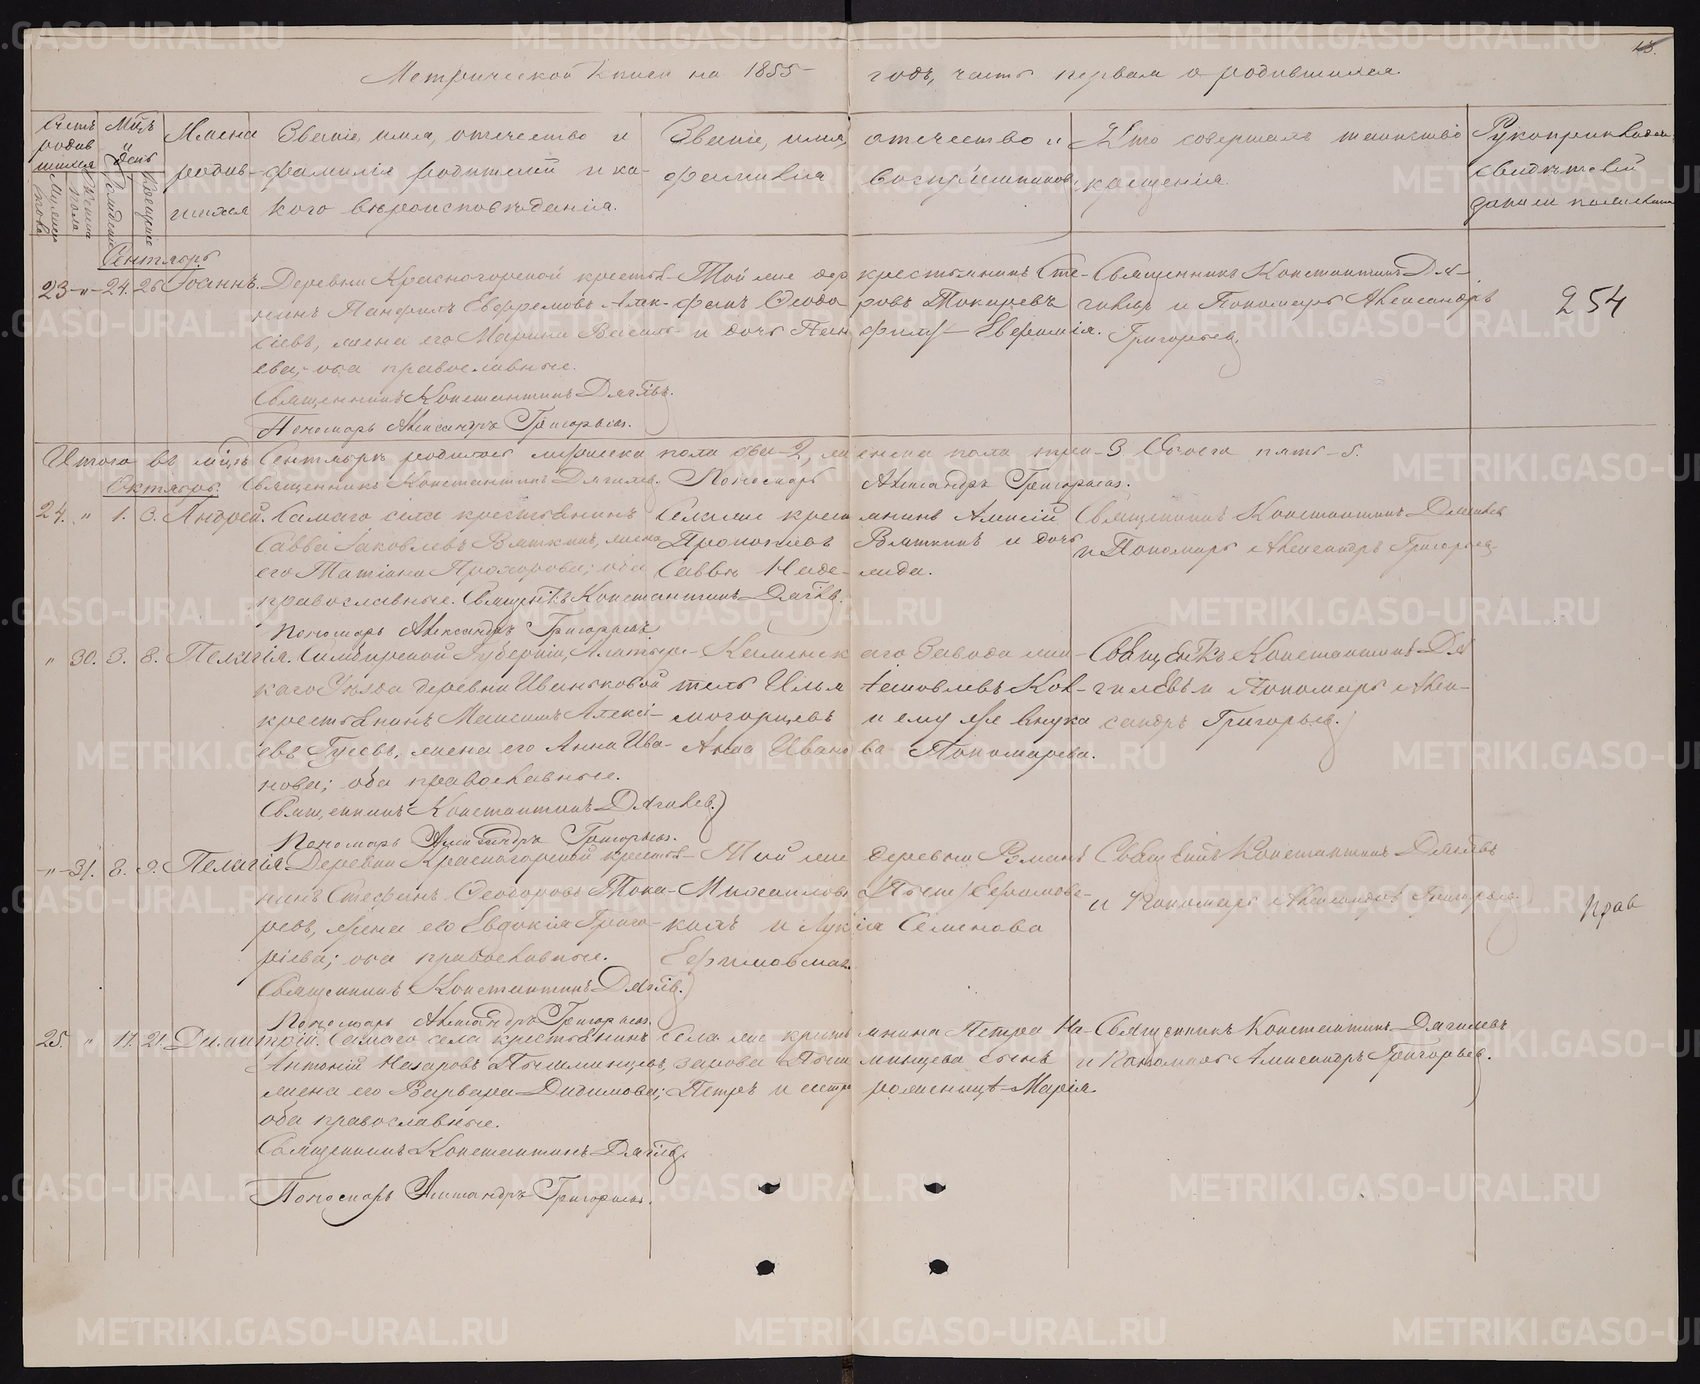 Метрической книги на 1855 годъ, часть первая о родившихся.
Счетъ родившихся
Мужеска пола
Женска пола
Мц҃ъ и день
Рожденія
Крещенія
Имена родившихся
Званіе, имя, отечество и фамилія родителей и какого вѣроисповѣданія.
Званіе, имя, отечество и фамилія воспріемниковъ.
Кто совершалъ таинство крещенія.
Рукоприкладство свидѣтелей
Сентябрь
23 - " - 24. 26 Іоаннъ.
Деревни Красногорской крестья-
нинъ Панфилъ Евфремовъ
жена его Марина Василь-
ева, оба православные.
Священникъ Константинъ Дягилевъ.
Пономарь Александръ Григорьевъ.
Той же дер крестьянинъ Сте-
фанъ Ѳеодоровъ Токаревъ
и дочь Панфила Евфимія.
Священникъ Константинъ Дя-
гилевъ и Пономарь Александръ
Григорьевъ.
254
Итого въ мцѣ Сентябрѣ родилось мужеска пола два - 2, женска пола три - 3 Обоего пять - 5.
Священникъ Константинъ Дягилевъ. Пономарь Александръ Григорьевъ.
Октябрь.
24. " 1. 3. Андрей.
Самаго села крестьянинъ
Савва Іаковлевъ Вяткинъ, жена
его Татіана Прохорова; оба
православные. Священникъ Константинъ Дягилевъ.
Пономарь Александръ Григорьевъ
Села же крестьянинъ Алексій
Вяткинъ и дочь
Саввы Наделида.
Священникъ Константинъ Дягилевъ
и Пономарь Александръ Григорьевъ
" 30. 3. 8. Пелагія.
Симбирской Губерніи, Алатырс-
каго Уѣзда деревни Иваньковой
крестьянинъ Максимъ Алексі-
евъ Гусевъ, жена его Анна Ива-
нова; оба православные.
Священникъ Константинъ Дягилевъ.
Пономарь Александръ Григорьевъ.
Каменскаго Завода жи-
тель Илья Іаковлевъ Кол-
могорцевъ и ему же внука
Анна Иванова Пономарева.
Священникъ Константинъ Дя
гилевъ и Пономарь Алек-
сандръ Григорьевъ.
" 31. 8. 9. Пелагія
Деревни Красногорской крестья-
нинъ Стефанъ Ѳеодоровъ Тока-
ревъ, жена его Евдокія Григо-
ріева; оба православные.
Священникъ Константинъ Дягилевъ.
Пономарь Александръ Григорьевъ.
Той же деревни Романъ
Михаиловъ
и Лукія Семенова
Священникъ Константинъ Дягилевъ
и Пономарь Александръ Григорьевъ.
25. " 17. 21. Димитрій.
Самаго села крестьянинъ
Антоній Назаровъ Пышминцевъ,
жена его Варвара Дидимова;
оба православные.
Священникъ Константинъ Дягилевъ.
Пономарь Александръ Григорьевъ.
Села же крестьянина Петра На-
зарова Пышминцева сынъ
Петръ и сестра роженицы Марія.
Священникъ Константинъ Дягилевъ
и Пономарь Александръ Григорьевъ.
METRIKI.GASO-URAL.RU